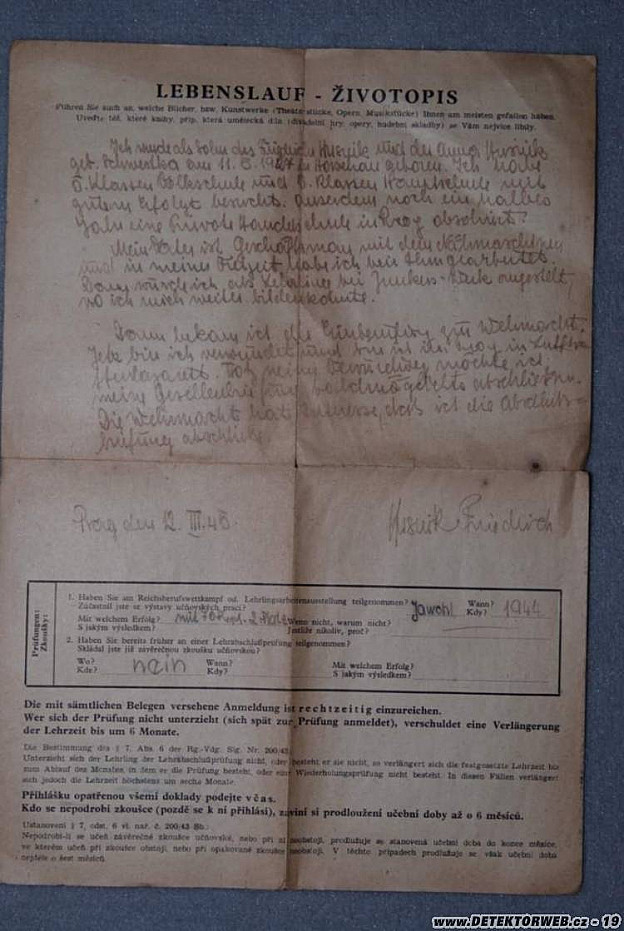 LEBENSLAUF - ŽIVOTOPIS
Führen Sie auch an, welche Bücher, bzw. Kunstwerke (Theaterstücke, Opern, Musikstücke) Ihnen am meisten gefallen haben.
Uveďte též, které knihy, příp. která umělecká díla (divadelní hry, opery, hudební skladby) se Vám nejvíce líbily.
Ich wurde als Sohn des Friedrich Husnik und der Anna Husnik
geb. am 11. geboren. Ich habe
5. Klassen Volksschule und Klassen Hauptschule mit
gutem Erfolge besucht. Ausserdem noch ein halbes
Jahr eine Private Handelschule in Prag absolviert.
Mein Vater ist Geschäftsmann mit den
und in meiner habe ich bei ihm gearbeitet.
Dann wurde ich als bei Junkers-Werk angestellt,
wo ich mich weiter
Dann bekam ich die Einberufung zur Wehrmacht.
bin ich verwundet und in Prag in
meiner möchte ich
meine abschließen.
Die Wehrmacht hat Interesse, daß ich die Abschluß-
prüfung
Prag den 12. III. 45.
Husnik Friedrich
Prüfungen:
Zkoušky:
1. Haben Sie am Reichsberufswettkampf od. Lehrlingsarbeitenausstellung teilgenommen? Jawohl Wann? 1944
Zúčastnil jste se výstavy učňovských prací? Kdy?
Mit welchem Erfolg? mit 2. Wenn nicht, warum nicht?
S jakým výsledkem? Jestliže nikoliv, proč?
2. Haben Sie bereits früher an einer Lehrabschlußprüfung teilgenommen?
Skládal jste již závěrečnou zkoušku učňovskou?
Wo? nein Wann? Mit welchem Erfolg?
Kde? Kdy? S jakým výsledkem?
Die mit sämtlichen Belegen versehene Anmeldung ist rechtzeitig einzureichen.
Wer sich der Prüfung nicht unterzieht (sich spät zur Prüfung anmeldet), verschuldet eine Verlängerung
der Lehrzeit bis um 6 Monate.
Die Bestimmung des § 7, Abs. 6 der Rg.-Vdg. Slg. Nr. 200/43:
Unterzieht sich der Lehrling der Lehrabschlußprüfung nicht, oder besteht er sie nicht, so verlängert sich die festgesetzte Lehrzeit bis
zum Ablauf des Monates, in dem er die Prüfung besteht, oder eine Wiederholungsprüfung nicht besteht. In diesen Fällen verlängert
sich jedoch die Lehrzeit höchstens um sechs Monate.
Přihlášku opatřenou všemi doklady podejte včas.
Kdo se nepodrobí zkoušce (pozdě se k ní přihlásí), zaviní si prodloužení učební doby až o 6 měsíců.
Ustanovení § 7, odst. 6 vl. nař. č. 200/43 Sb.:
Nepodrobí-li se učeň závěrečné zkoušce učňovské, nebo při ní neobstojí, prodlužuje se stanovená učební doba do konce měsíce,
ve kterém učeň při zkoušce obstojí, nebo při opakované zkoušce neobstojí. V těchto případech prodlužuje se však učební doba
nejvýše o šest měsíců.
www.DETEKTORWEB.cz - 19